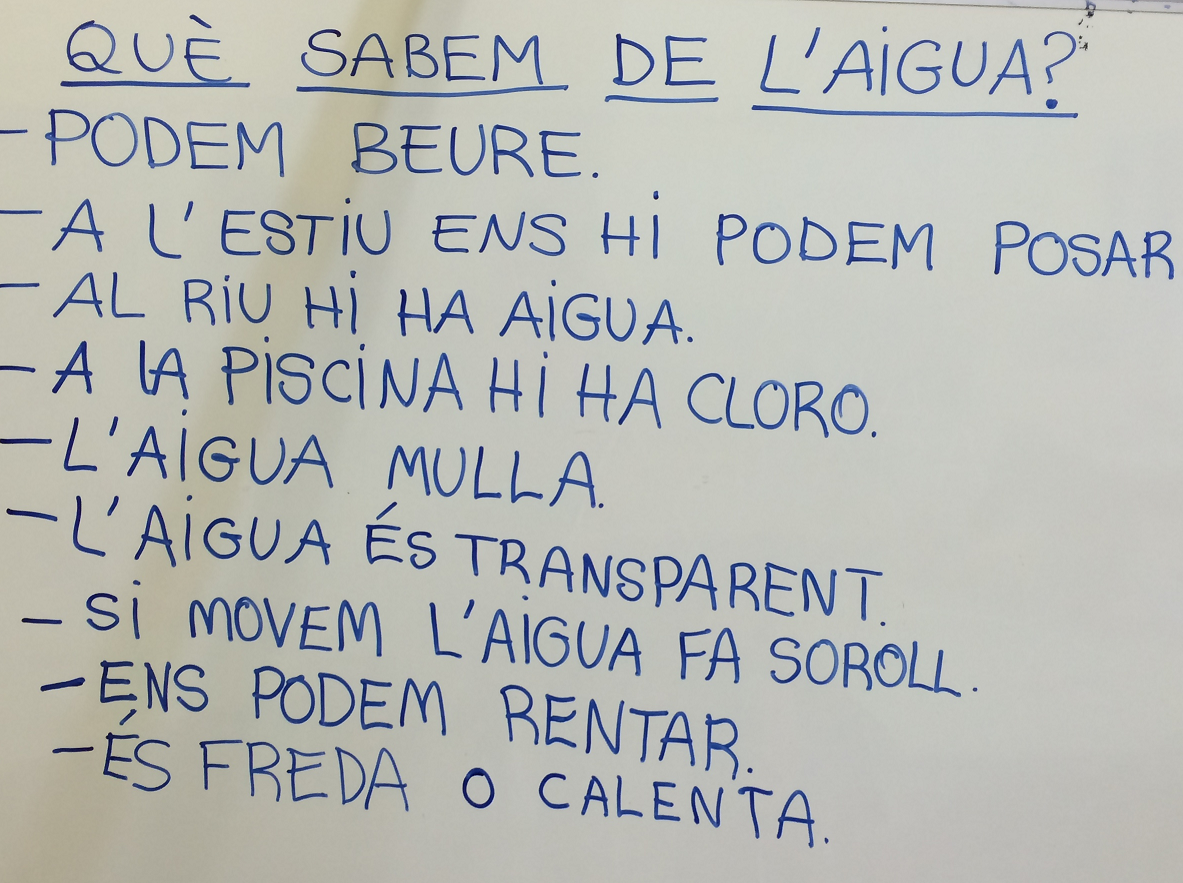 QUÈ SABEM DE L'AiGUA?
- PODEM BEURE.
- A L'ESTiU ENS Hi PODEM POSAR
- AL RiU Hi HA AiGUA.
- A lA PiSCiNA Hi HA CLORO.
- L'AiGUA MULLA.
- L'AiGUA ÉS TRANSPARENT.
- Si MOVEM L'AiGUA FA SOROLL.
- ENS PODEM RENTAR.
- ÉS FREDA O CALENTA.